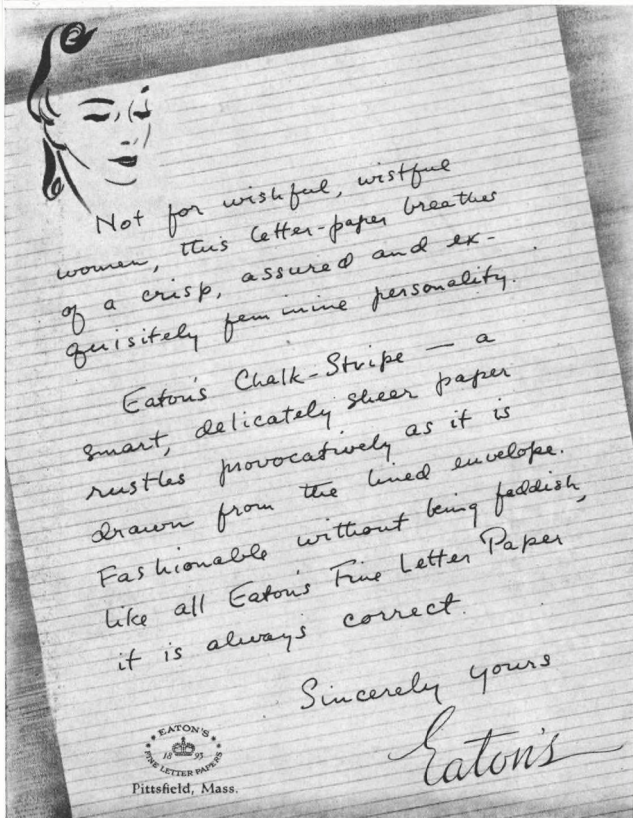 Not for wishful, wistful
women, this letter-paper breathes
of a crisp, assured and ex-
quisitely feminine personality.
Eaton's Chalk-Stripe — a
smart, delicately sheer paper
rustles provocatively as it is
drawn from the lined envelope.
Fashionable without being faddish,
like all Eaton's Fine Letter Paper
it is always correct.
Sincerely yours
Eaton's
EATON'S
18 93
FINE LETTER PAPERS
Pittsfield, Mass.